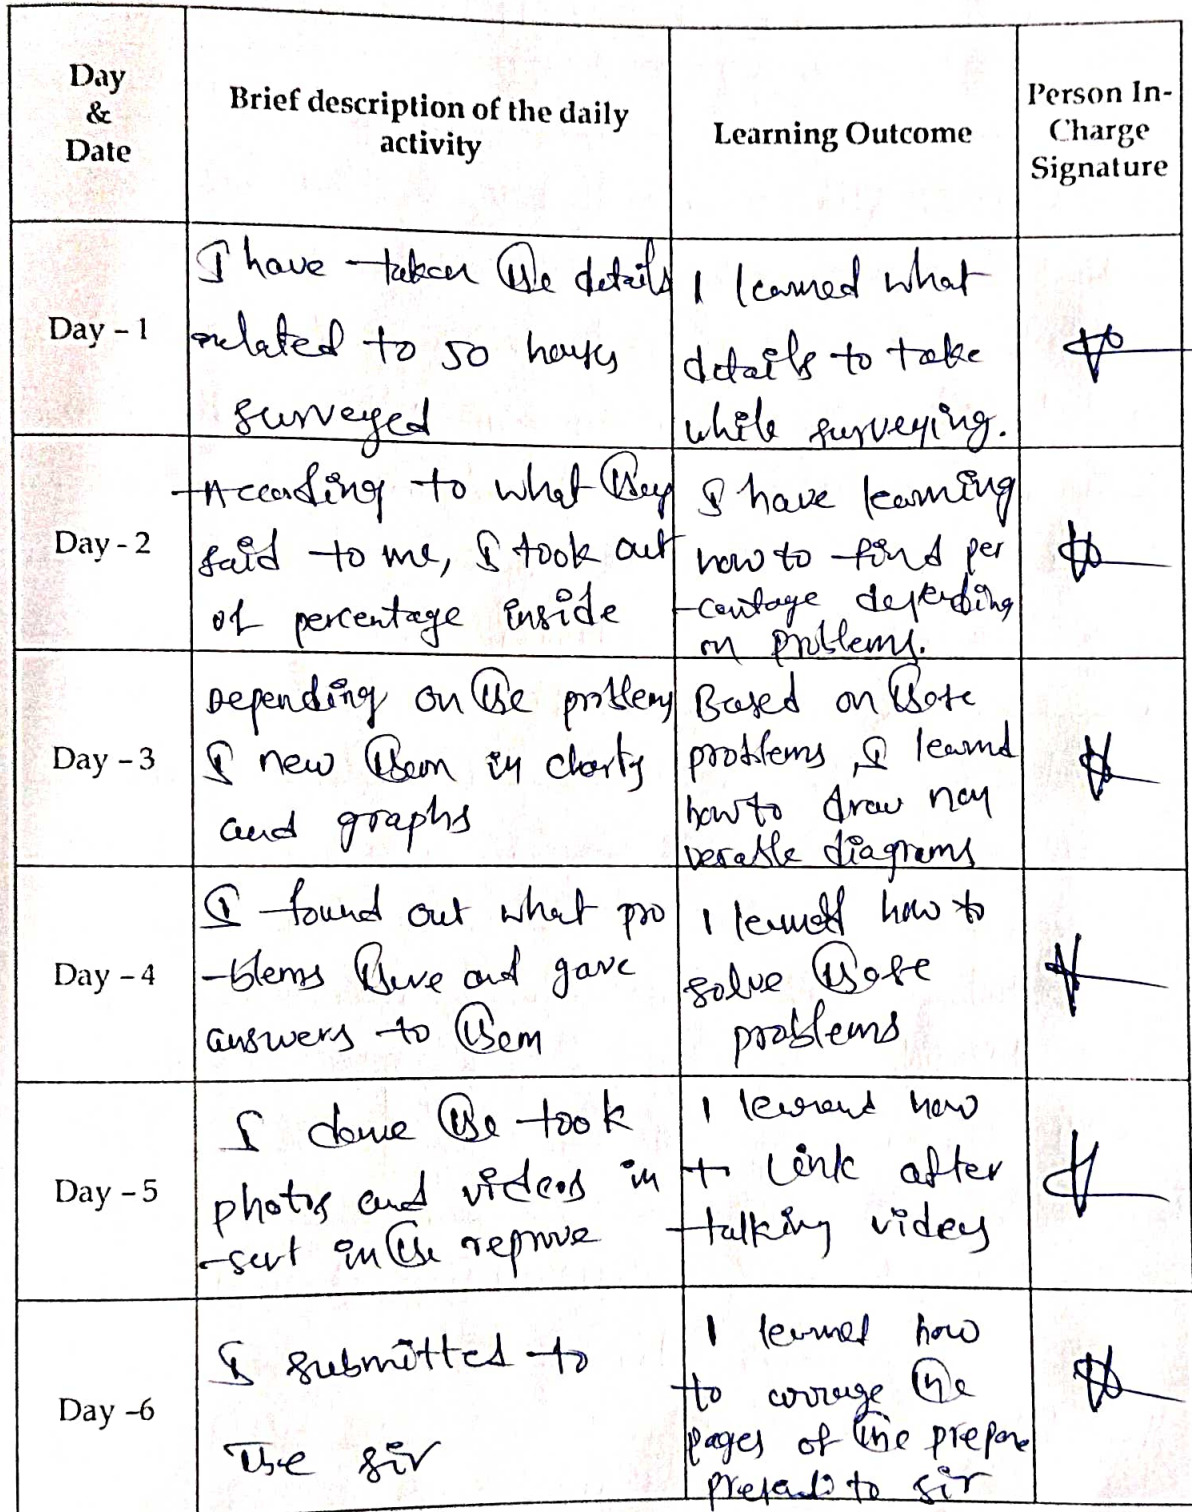 Day
&
Date
Brief description of the daily
activity
Learning Outcome
Person In-
Charge
Signature
Day - 1
I have taken the details
related to 50 houses
surveyed
I learned what
details to take
while surveying.
Day - 2
According to what they
said to me, I took out
of percentage inside
I have learning
how to find per
-centage depending
on problems.
Day - 3
Depending on the problems
I new them in charts
and graphs
Based on those
problems, I learnd
how to draw
diagrams
Day - 4
I found out what pro
-blems there and gave
answers to them
I learned how to
solve those
problems
Day - 5
I done the took
photos and videos in
-sert in the
I learned how
to link after
talking videos
Day -6
I submitted to
The sir
I learned how
to the
pages of the prepare
to sir